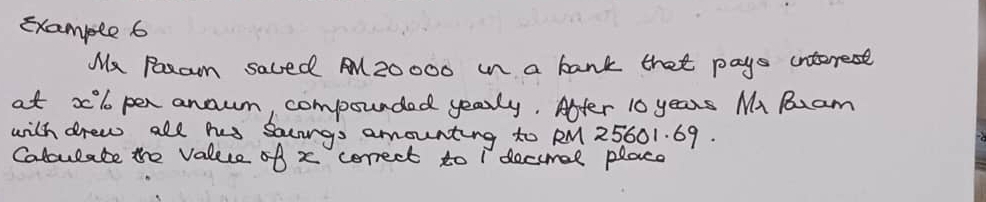 Example 6
Mr Param saved RM 20 000 in a bank that pays interest
at x% per annum, compounded yearly. After 10 years Mr Param
withdrew all his Savings amounting to RM 25601.69.
Calculate the value of x correct to 1 decimal place